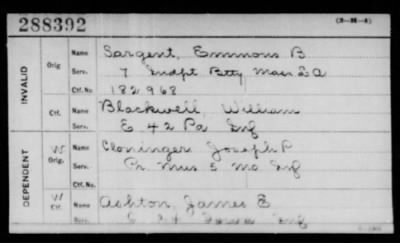 288392
(3-M-4)
INVALID Orig. Name Sargent, Emmons B
Serv. 7 Indpt Btty Mass L A
Ctf. No. 182968
Ctf. Name Blackwell, William
Serv. E 42 Pa Inf
DEPENDENT W Orig. Name Cloninger Joseph P
Serv. Pr. Mus 5 Mo Inf
Ctf. No.
W Ctf. Name Ashton, James E
Serv. E 24 Inf